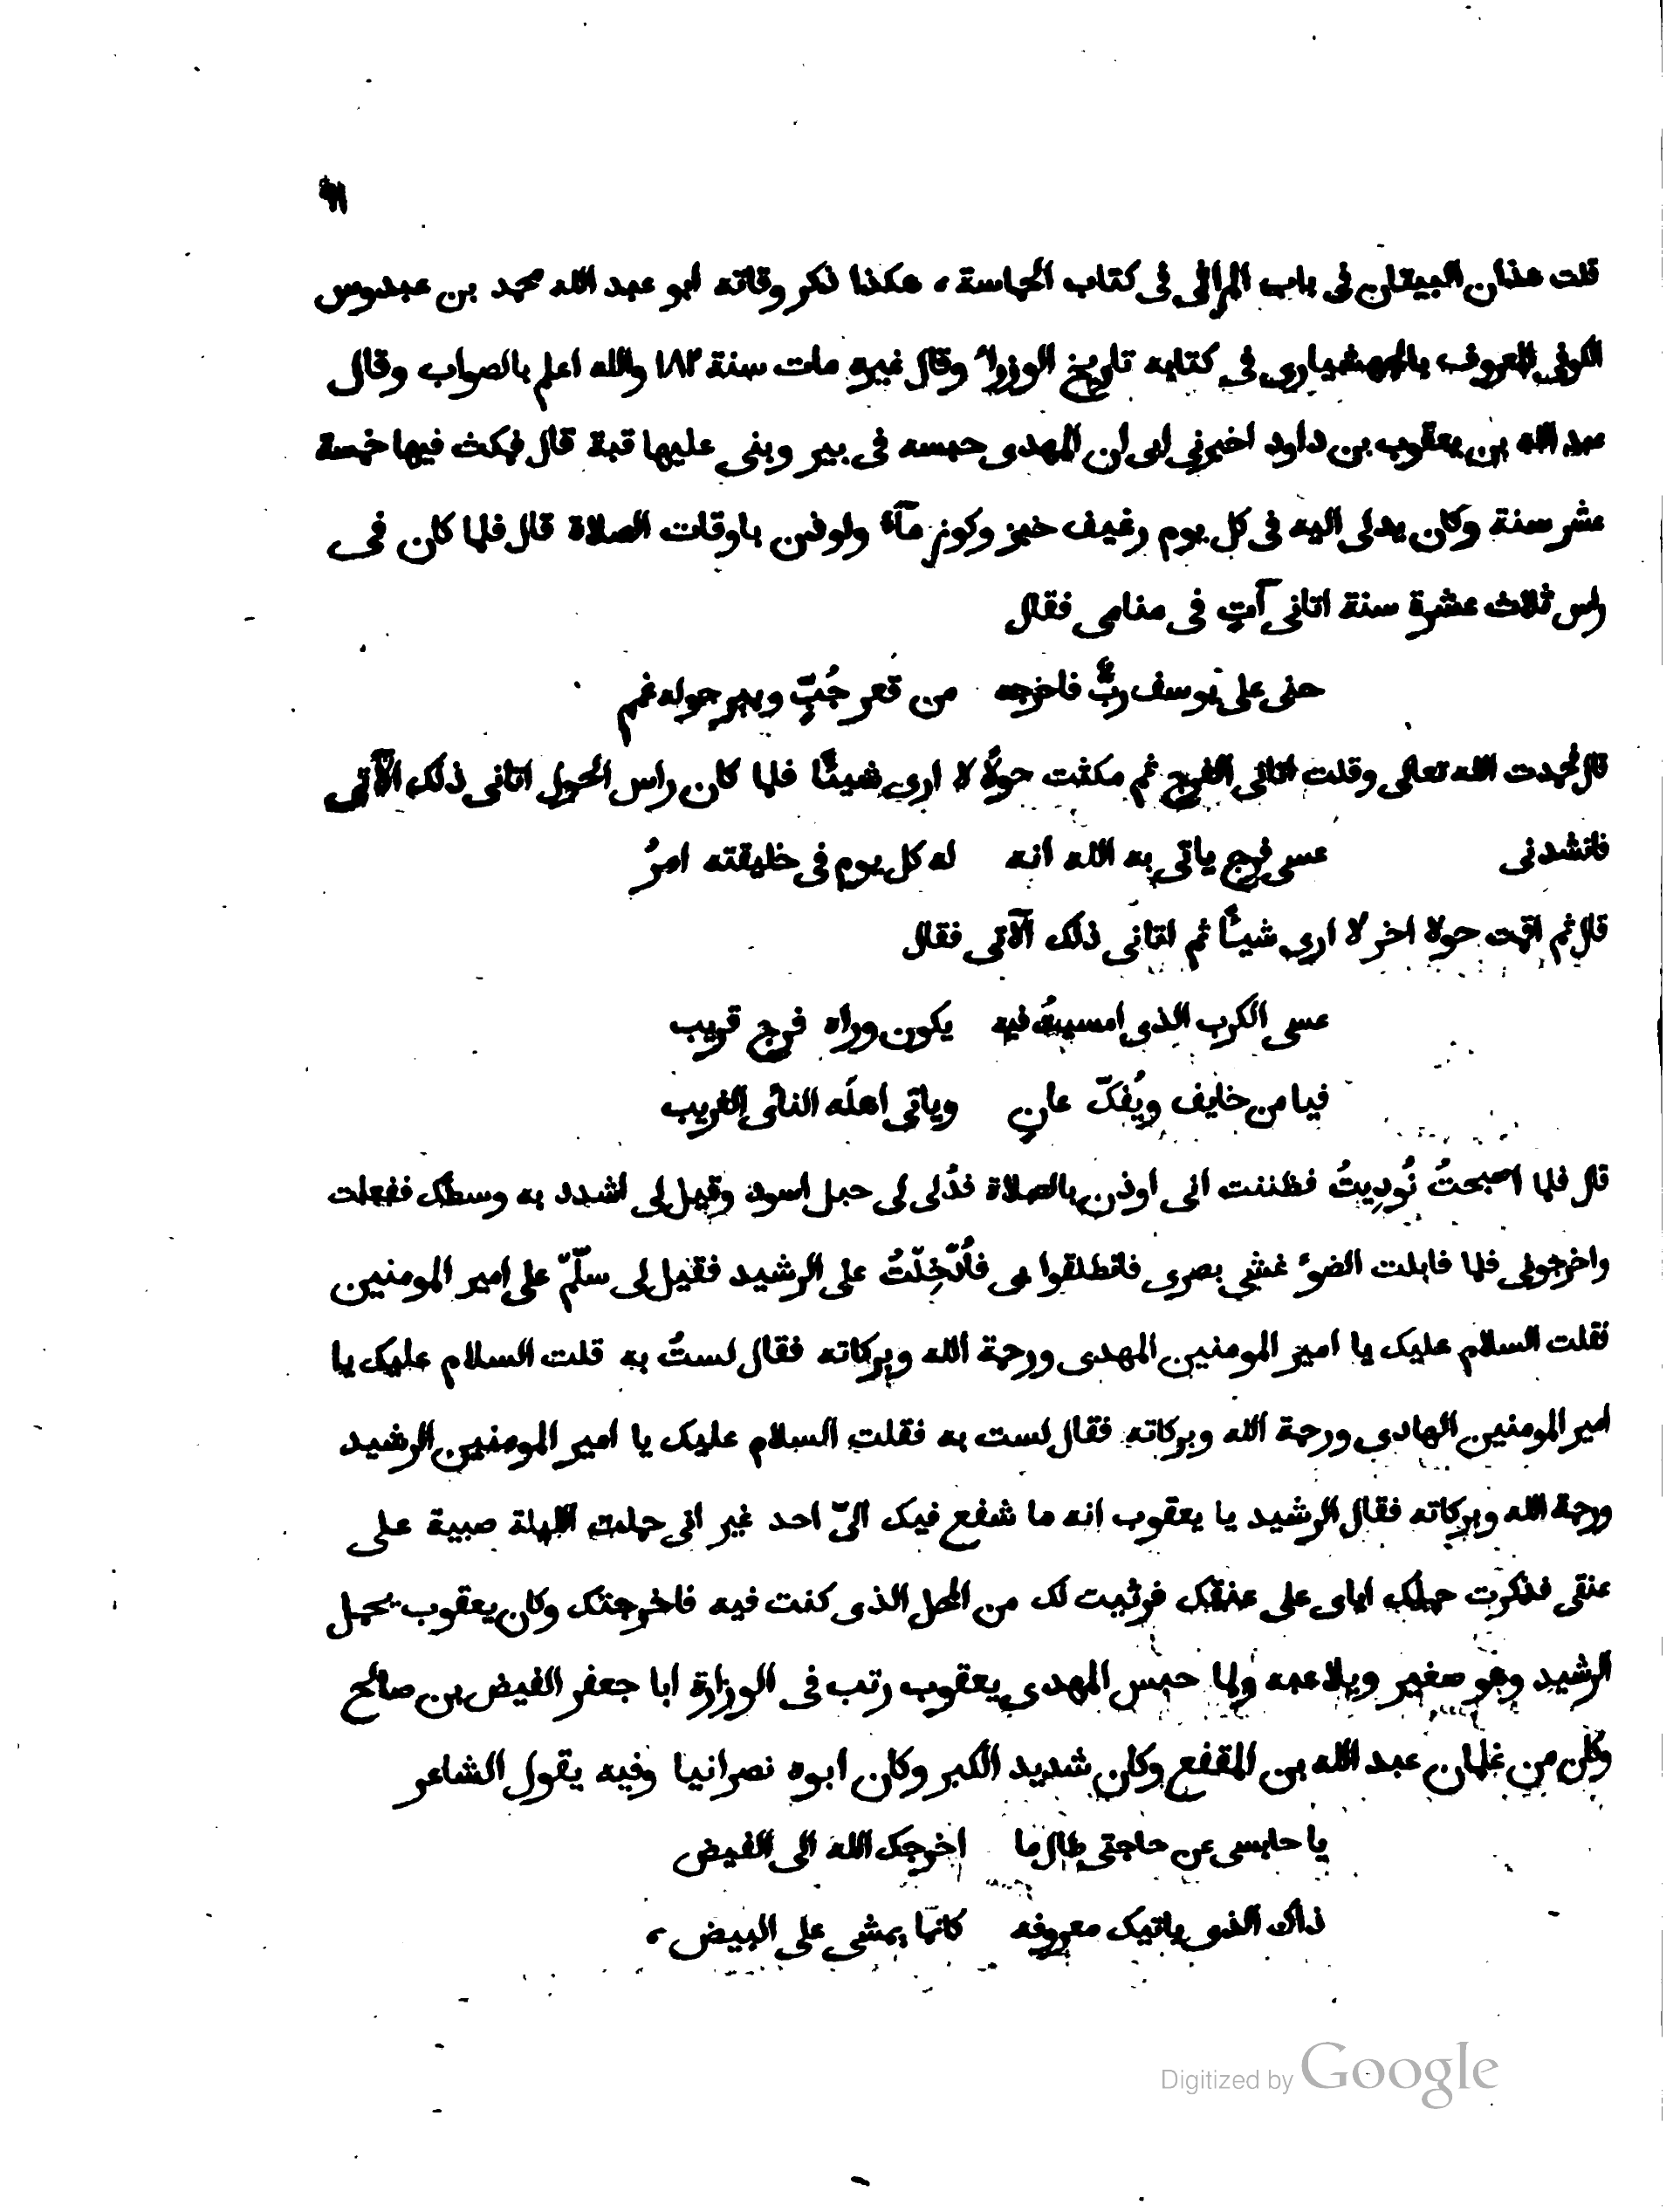 ٩١
قلت هذان البيتان في باب المراثي في كتاب الحماسة، هكذا ذكر وفاته ابو عبد الله محمد بن عبدوس
الكوفي المعروف بالجهشياري في كتابه تاريخ الوزراء وقال غيره مات سنة ١٨٢ والله اعلم بالصواب وقال
عبد الله بن يعقوب بن داود اخبرني ابي ان المهدي حبسه في بير وبنى عليها قبة قال فمكث فيها خمسة
عشر سنة وكان يدلى اليه في كل يوم رغيف خبز وكوز مآء واوذن باوقات الصلاة قال فلما كان في
راس ثلاث عشرة سنة اتاني آتٍ في منامي فقال
حنى على يوسف ربٌّ فاخرجه من قعر جُبٍّ وبير حوله غم
قال فحمدت الله تعالى وقلت اتاني الفرج ثم مكثت حولًا لا ارى شيئًا فلما كان راس الحول اتاني ذلك الآتي
فانشدني عسى فرج ياتي به الله انه له كل يوم في خليقته امرُ
قال ثم اقمت حولا اخر لا ارى شيئًا ثم اتاني ذلك الآتي فقال
عسى الكرب الذي امسيتُ فيه يكون وراه فرج قريب
فيامن خايف ويُفكّ عانٍ وياتي اهلَه النائي الغريب
قال فلما اصبحتُ نُودِيتُ فظننت اني اوذن بالصلاة فدُلى لي حبل اسود وقيل لي اشدد به وسطك ففعلت
واخرجوني فلما قابلت الضوء غشي بصري فانطلقوا بي فأُدْخِلْتُ على الرشيد فقيل لي سلّمْ على امير المومنين
فقلت السلام عليك يا امير المومنين المهدي ورحمة الله وبركاته فقال لستُ به قلت السلام عليك يا
امير المومنين الهادي ورحمة الله وبركاته فقال لست به فقلت السلام عليك يا امير المومنين الرشيد
ورحمة الله وبركاته فقال الرشيد يا يعقوب انه ما شفع فيك اليّ احد غير اني حملت الليلة صبية على
عنقي فذكرت حملك اياي على عنقك فرثيت لك من المحل الذي كنت فيه فاخرجتك وكان يعقوب يحمل
الرشيد وهو صغير ويلاعبه ولما حبس المهدي يعقوب رتب في الوزارة ابا جعفر الفيض بن صالح
وكان من غلمان عبد الله بن المقفع وكان شديد الكبر وكان ابوه نصرانيا وفيه يقول الشاعر
يا حابسي عن حاجتي ظالما اخرجك الله الى الفيض
ذاك الذي ياتيك معروفه كانما يمشي على البيض،
Digitized by Google